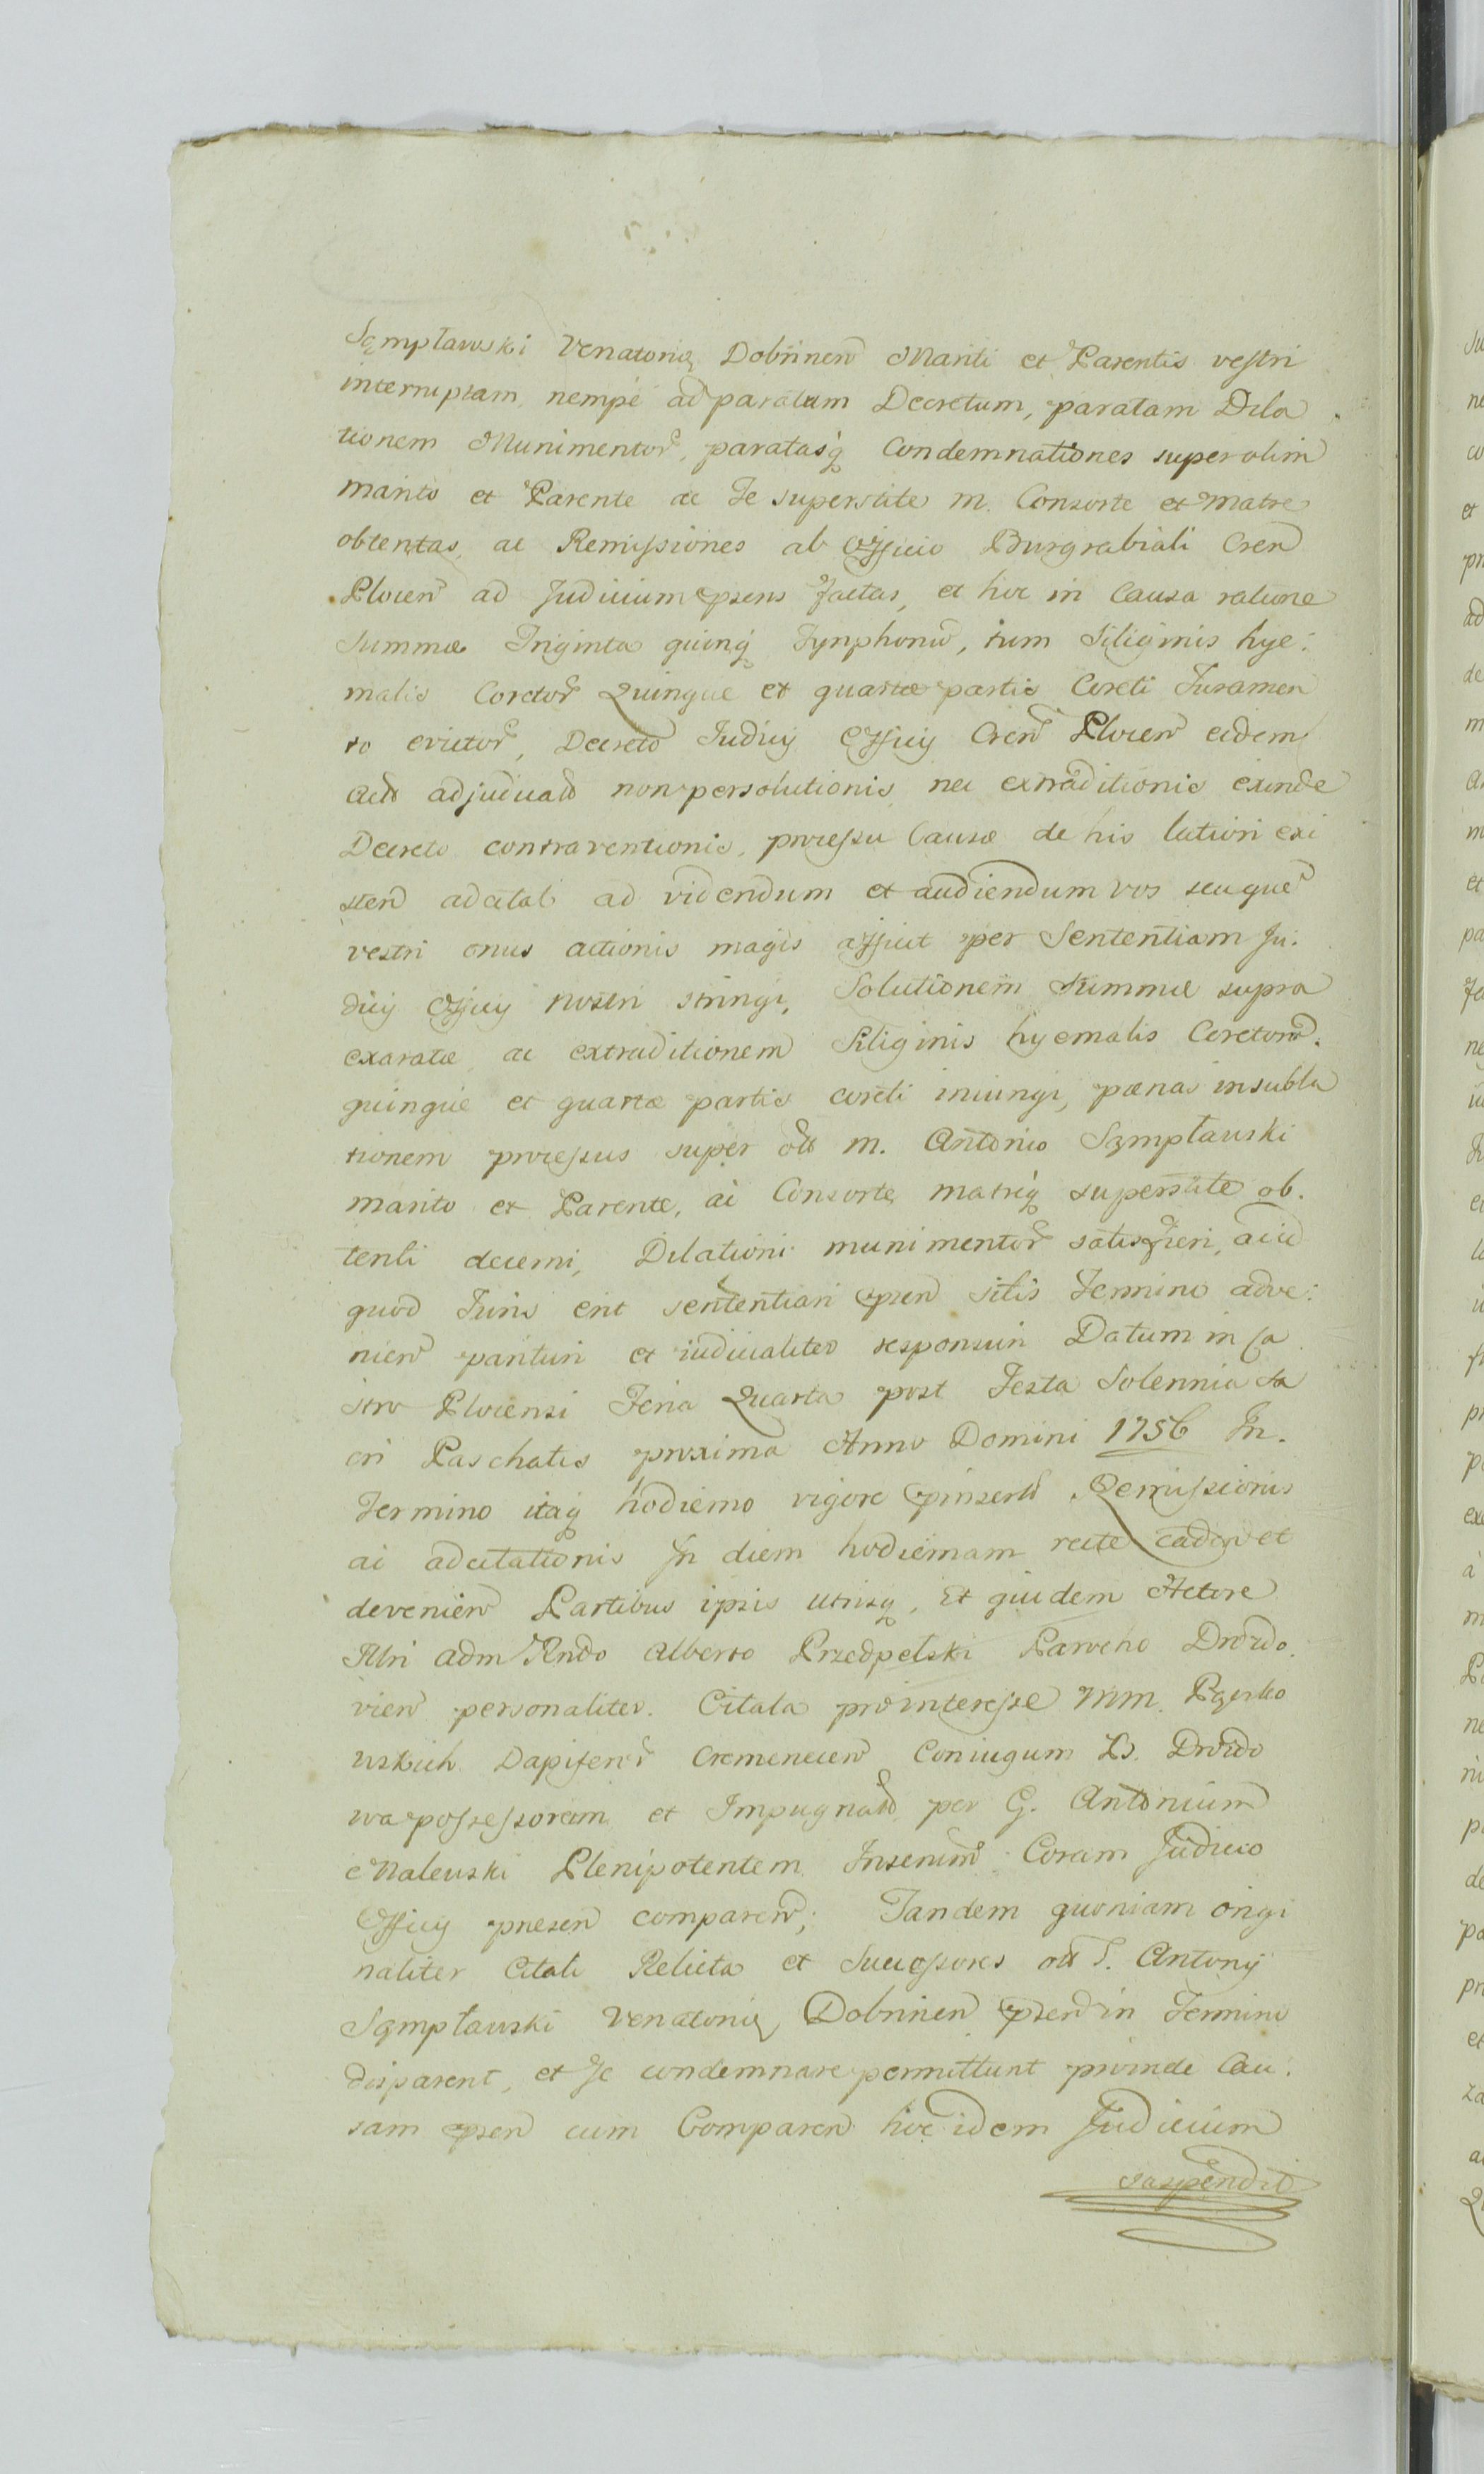 Sąmpławski Venatoris Dobrinen Mariti et Parentis vestri
interruptam nempè ad paratam Decretum, paratam Dila
tionem Munimentor, paratasq Condemnationes super olim
marito et Parente ac Te superstite m. Consorte et Matre
obtentas, ac Remissiones ab Officio Burgrabiali Cren
Plocen ad Judicium prens factas, et hoc in Causa ratione
Summæ Triginta quinq Tynphonu, tum Siliginis hye:
malis Coretor Quinque et quartæ partis Coreti Juramen
to evictor, Decreto Judicij Officij Cren Plocen eidem
Actt adjudicatt non persolutionis nec extraditionis exinde
Decreto contraventionis, processu Causæ de his latiori exi
sten adcitati ad videndum et audiendum vos seuque
vestri onus actionis magis afficit per Sententiam Ju:
dicij Officij nostri stringi, Solutionem Summæ supra
exaratæ ac extraditionem Siliginis hyemalis Coretorum
quinque et quartæ partis coreti iniungi, pænas in subla
tionem processus super ott m. Antonio Sąmpławski
marito et Parente, ac Consorte matriq superstite ob.
tenti decerni, Dilationi munimentor satisfieri, ac id
quod Juris erit sententiari pren sitis Termino adve:
nien parituri et iudicialiter responsuri Datum in Ca
stro Plocensi Feria Quarta post Festa Solennia Sa
cri Paschatis proxima Anno Domini 1756 In.
Termino itaq hodierno vigore prinsertt Remissionis
ac adcitationis In diem hodiernam recte caden et
devenien Partibus ipsis utrisq, Et quidem Actore
Illri adm Rndo Alberto Przedpełski Parocho Drozdo
vien personaliter. Citata pro interesse Mm. Pgowo
wskich Dapiferor Cremenecen Coniugum Ls. Drozdo
wa possessorum et Impugnatt per G. Antonium
Malewski Plenipotentem Inserum Coram Judicio
Officij præsen comparen; Tandem quoniam origi
naliter Citati Relicta et Successores ott S. Antonij
Sąmpławski Venatoris Dobrinen pren in Termino
disparent, et se condemnare permittunt proinde Cau:
sam pren cum Comparen hoc idem Judicium
suspendit